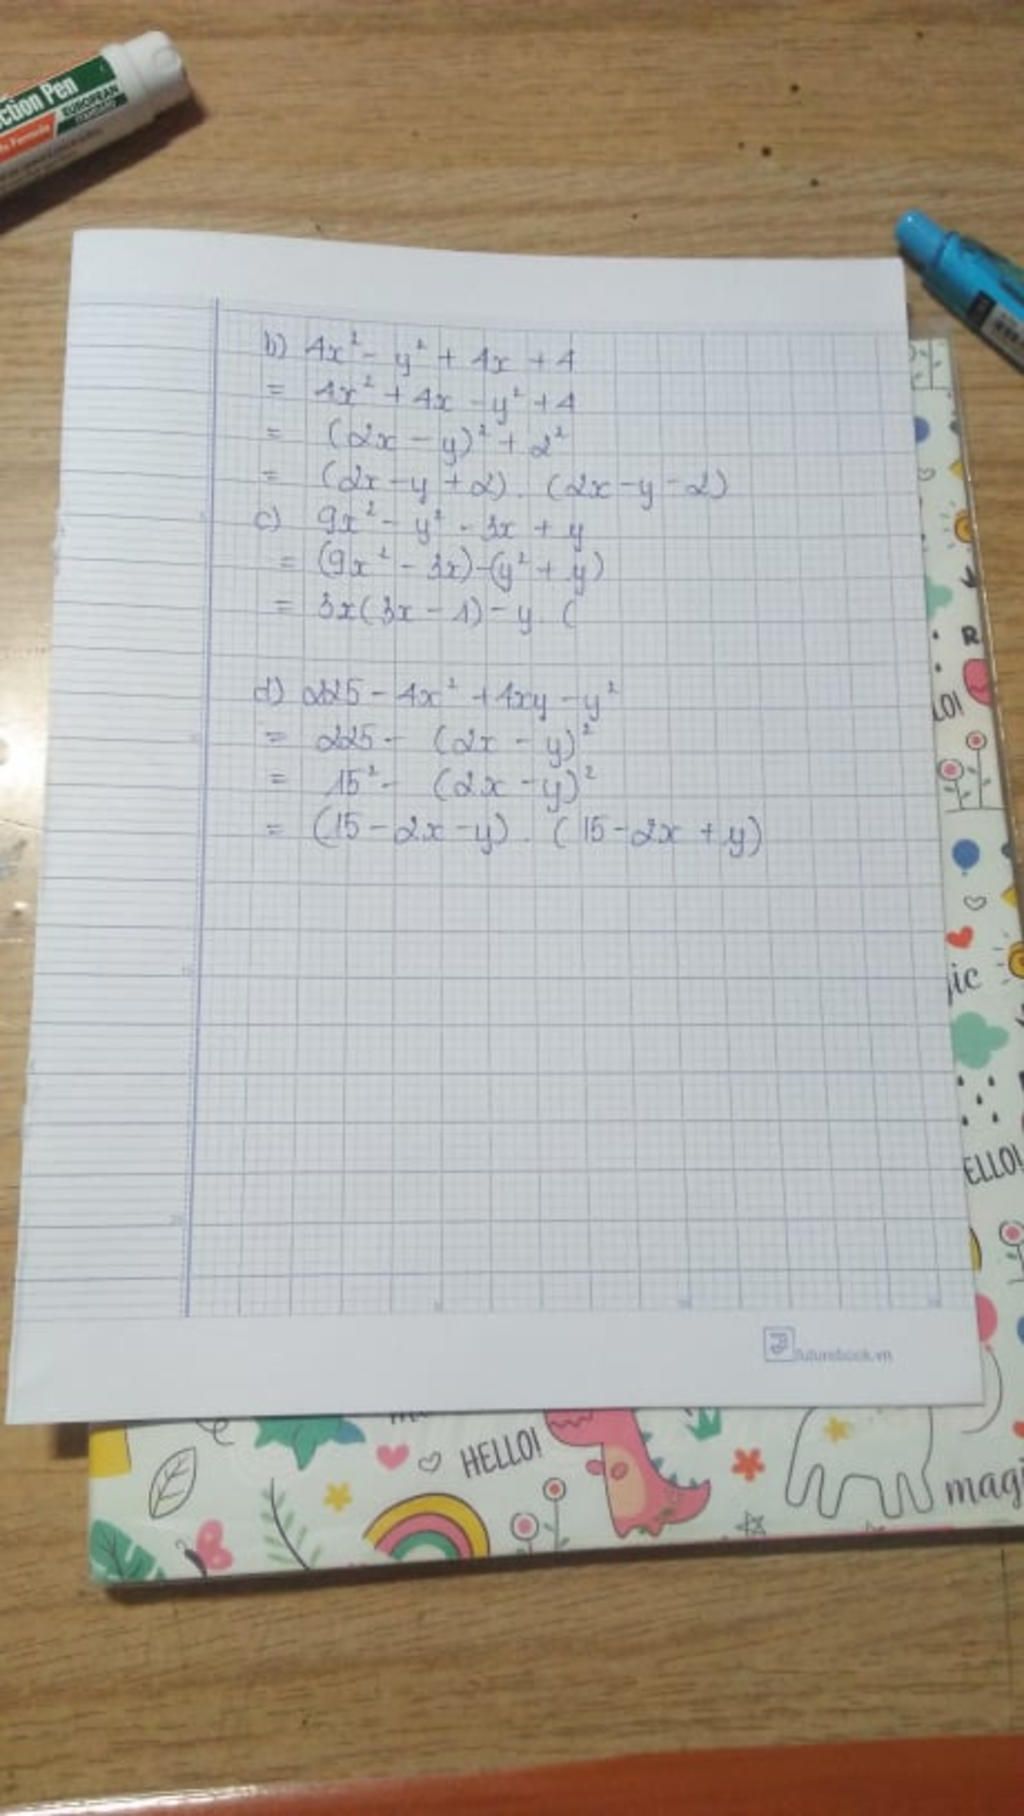 ction Pen
EUROPEAN
b) 4x² - y² + 4x + 4
= 4x² + 4x - y² + 4
= (2x - y)² + 2²
= (2x - y + 2) . (2x - y - 2)
c) 9x² - y² - 3x + y
= (9x² - 3x) - (y² + y)
= 3x(3x - 1) - y . (
d) 225 - 4x² + 4xy - y²
= 225 - (2x - y)²
= 15² - (2x - y)²
= (15 - 2x - y) . (15 - 2x + y)
futurebook.vn
R
LO!
ic
ELLO!
HELLO!
magi